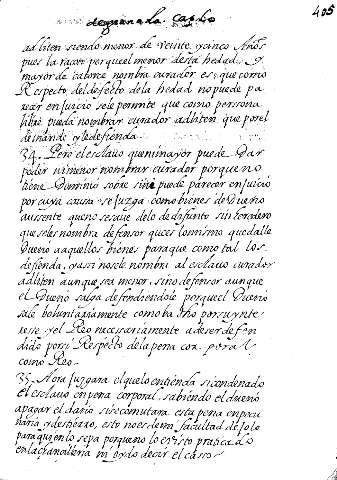 405
ad liten siendo menor de veinte y cinco Años
pues la razon porque el menor desta hedad y
mayor de catorce nombra curador es, que como
Respecto, del defecto dela hedad no puede pa
recer en Juicio sele permite que como persona
libre pueda nombrar curador ad liten que por el
demande y le defienda.
34. Pero el esclavo que ni mayor puede Dar
poder ni menor nombrar curador porque no
tiene Dominio sobre si ni puede parecer en Juicio
por cuya causa se Juzga como bienes de Dueño
aussente que no se save de lo de difunto sin heredero
que seles nombra defensor que es lo mismo que dalle
Dueño a aquellos bienes para que como tal los
defienda, y assi no sele nombre al esclavo curador
ad liten aunque sea menor, sino defensor aunque
el Dueño salga defendiendole porque el Dueño
sale boluntariamente como ba dho por su ynte
resse y el Reo necessariamente a de ser defen
dido por si Respecto de la pena corporal
como Reo.
35. Aora Juzgara el que lo entienda si condenado
el esclavo en pena corporal, sabiendo el dueño
a pagar el daño si se comutara esta pena en pecu
niaria y destierro, esto no es de mi facultad de solo
para quien lo sepa porque no lo e visto praticado
en la chancilleria ni e oydo decir el casso